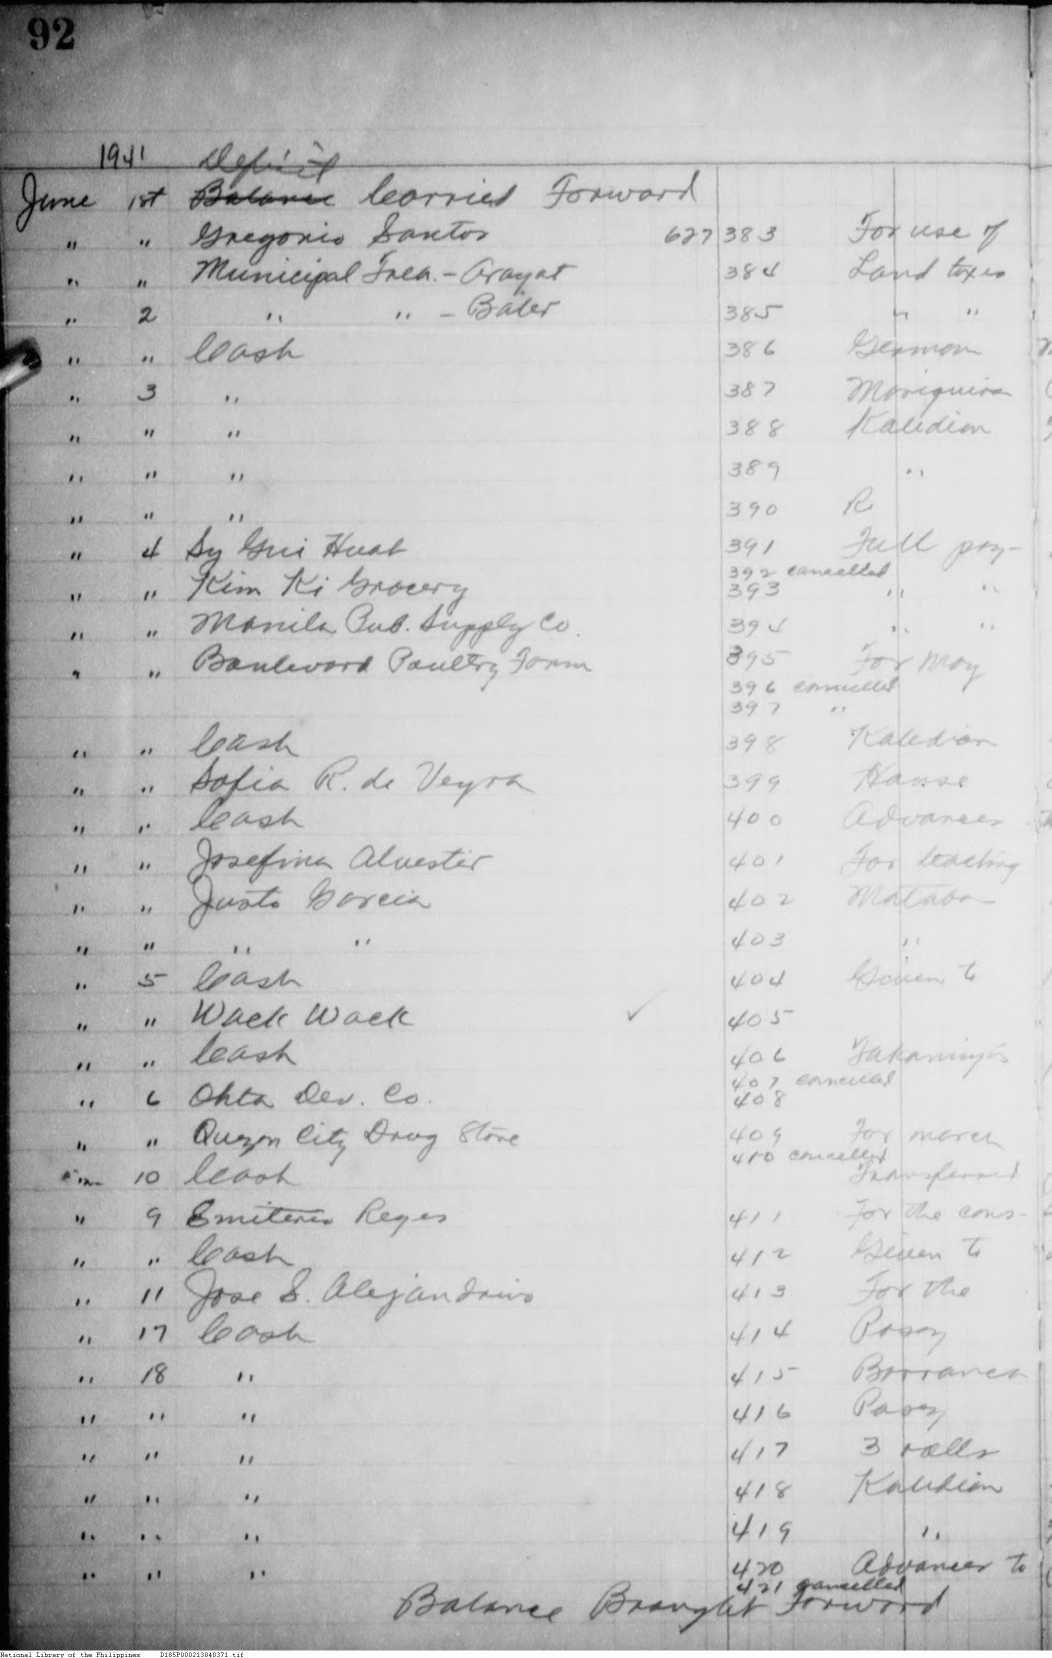 92
1941 Deficit
June 1st Balance Carried Forward
" " Gregorio Santos 627383 For use of
" " Municipal Trea. - Arayat 384 Land taxes
" 2 " " - Baler 385 " "
" " Cash 386 German
" 3 " 387 Mariquina
" " " 388 Kaledian
" " " 389 "
" " " 390 R
" 4 Sy Gui Huat 391 Full pay-
392 cancelled
" " Kim Ki Grocery 393 " "
" " Manila Bub. Supply Co. 394 " "
" " Boulevard Poultry Farm 395 For May
396 cancelled
397 "
" " Cash 398 Kaledian
" " Sofia R. de Veyra 399 House
" " Cash 400 Advances
" " Josefina 401 For teaching
" " Justo Garcia 402
" " " " 403 "
" 5 Cash 404 Given to
" " Wack Wack ✓ 405
" " Cash 406
407 cancelled
" 6 Ohta Dev. Co. 408
" " Quezon City Drug Store 409 For march
410 cancelled
10 Cash Transferred
" 9 Emiterio Reyes 411 For the cons-
" " Cash 412 Given to
" 11 Jose S. Alejandrino 413 For the
" 17 Cash 414 Pasay
" 18 " 415 Barranca
" " " 416 Pasay
" " " 417 3 rolls
" " " 418 Kaledian
" " " 419 "
" " " 420 Advances to
421 cancelled
Balance Brought Forward
National Library of the Philippines D185P000213840371.tif